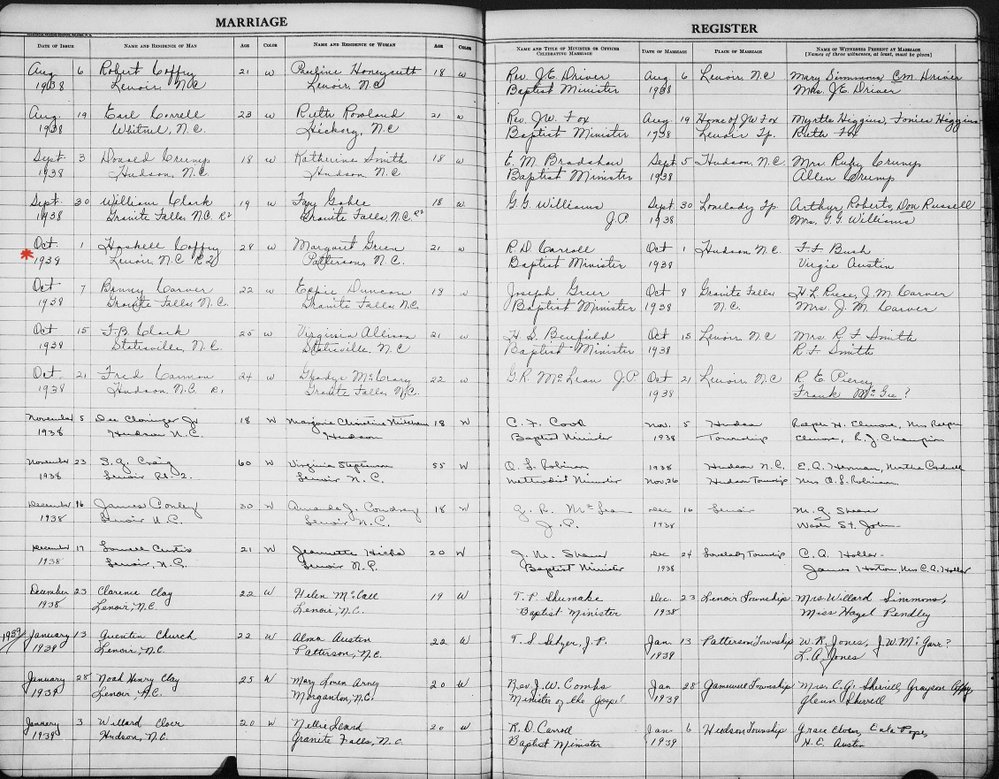 MARRIAGE REGISTER
DATE OF ISSUE NAME AND RESIDENCE OF MAN AGE COLOR NAME AND RESIDENCE OF WOMAN AGE COLOR NAME AND TITLE OF MINISTER OR OFFICER CELEBRATING MARRIAGE DATE OF MARRIAGE PLACE OF MARRIAGE NAME OF WITNESSES PRESENT AT MARRIAGE [Names of three witnesses, at least, must be given]
Aug 6 Robert Coffey 21 W Pauline Honeycutt 18 W Rev. J.E. Driver Aug 6 Lenoir, N.C Mary Simmons, CM Driver
1938 Lenoir, N.C Lenoir, N.C Baptist Minister 1938 Mrs. J.E. Driver
Aug 19 Earl Correll 23 W Ruth Rowland 21 W Rev. J.W. Fox Aug 19 Home of JW Fox Myrtle Higgins, Higgins
1938 Whitnel, N.C. Hickory, N.C Baptist Minister 1938 Lenoir Tp. Ruth Fox
Sept. 3 Donald Crump 18 W Katherine Smith 18 W E. M Bradshaw Sept. 5 Hudson, N.C. Mrs Ruby Crump
1938 Hudson, N.C Hudson, N.C Baptist Minister 1938 Allen Crump
Sept. 30 William Clark 19 W Fay Gable 18 W G.G. Williams Sept. 30 Lovelady Tp. Arthur Roberts, Don Russell
1938 Granite Falls N.C. R2 Granite Falls, N.C R2 J.P. 1938 Mrs. G.G. Williams
* Oct 1 Haskell Coffey 28 W Margaret Green 21 W R.D. Carroll Oct 1 Hudson N.C. F.F. Bush
1938 Lenoir, N.C R 2 Patterson, N.C. Baptist Minister 1938 Virgie Austin
Oct 7 Benny Carver 22 W Effie Duncan 18 W Joseph Greer Oct 8 Granite Falls H L J. M. Carver
1938 Granite Falls N.C. Granite Falls N.C. Baptist Minister 1938 N.C. Mrs. J. M. Carver
Oct 15 F.B. Clark 25 W Virginia Allison 21 W H. S. Benfield Oct 15 Lenoir, N.C Mrs R F Smith
1938 Statesville, N.C. Statesville, N.C Baptist Minister 1938 R F Smith
Oct. 21 Fred 24 W Gladys McCrary 22 W G.R. McLean J.P Oct 21 Lenoir, N.C R. E Piercy
1938 Hudson, N.C. R1 Granite Falls, N.C. 1938 Frank McGee?
November 5 Dee Cloninger Jr 18 W Marjorie Christine Mitchem 18 W C. F. Cook Nov. 5 Hudson Ralph H. Clemons, Mrs Ralph
1938 Hudson N.C. Hudson Baptist Minister 1938 Township Clemons, R.J Champion
November 23 S. G. Craig 60 W Virginia Stephenson 55 W O. L. Robinson 1938 Hudson N.C. E. A. Herman,
1938 Lenoir Rt. 2. Lenoir N.C. Methodist Minister Nov. 26 Hudson Township Mrs O. L. Robinson
December 16 James Conley 30 W Amanda J. Coudrey 18 W G. R. McLean Dec 16 Lenoir M. G. Shearer
1938 Lenoir N.C. Lenoir, N.C. J.P. 1938 Wade St. John
December 17 Lowell Curtis 21 W Jeannette Hicks 20 W J. M. Shearer Dec 24 Lovelady Township C. A. Hollar
1938 Lenoir, N.C. Lenoir N.C. Baptist Minister 1938 James Horton, Mrs C.A. Hollar
December 23 Clarence Clay 22 W Helen McCall 19 W T. P. Shumake Dec. 23 Lenoir Township Mrs. Willard Simmons,
1938 Lenoir, N.C. Lenoir, N.C. Baptist Minister 1938 Miss Hazel Pendley
1939 January 13 Quentin Church 22 W Alma Austin 22 W T. S. Setzer, J.P. Jan. 13 Patterson Township W. R. Jones, J.W. McGarr?
1939 Lenoir, N.C. Patterson, N.C. 1939 L.A. Jones
January 28 Noah Henry Clay 25 W Mary Loven Arney 20 W Rev. J.W. Combs Jan. 28 Gamewell Township Mrs. C.G. Sherrill, Grayson Coffey,
1939 Lenoir, N.C. Morganton, N.C. Minister of the Gospel 1939 Glenn Sherrill
January 3 Willard Cloer 20 W Nellie Icard 20 W R. D. Carroll Jan 6 Hudson Township Grace Cloer, Pope,
1939 Hudson, N.C. Granite Falls, N.C. Baptist Minister 1939 H.C. Austin